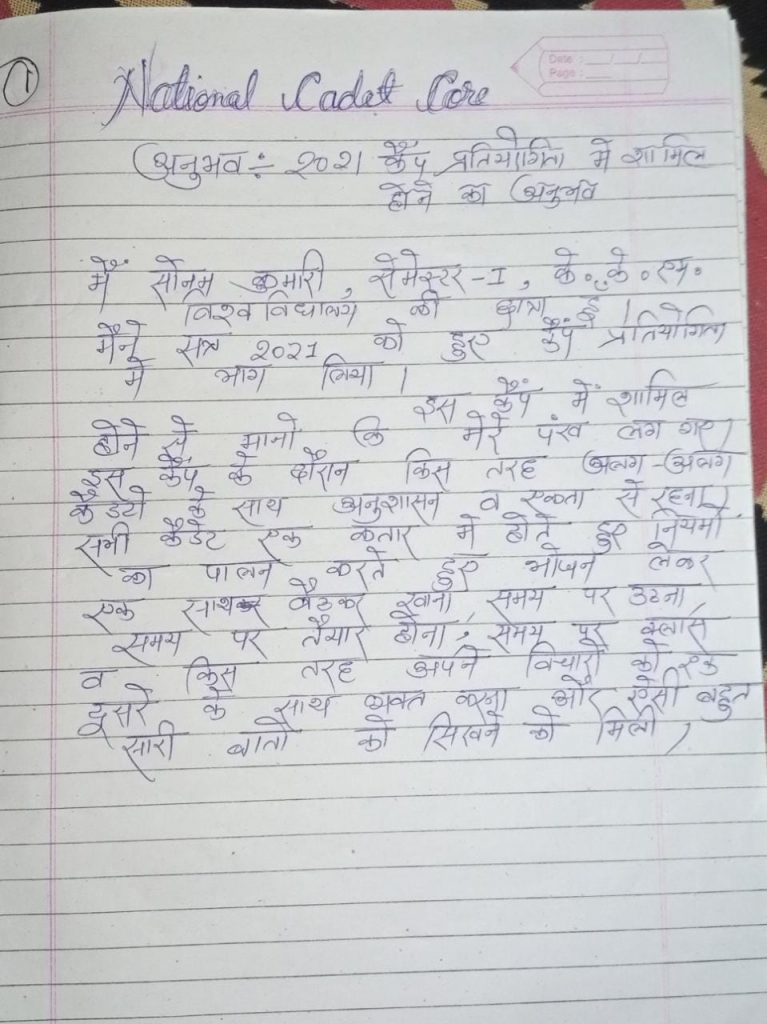 1
Date : __/__/__
Page : ____
National Cadet Core
अनुभव ÷ 2021 कैंप प्रतियोगिता में शामिल
होने का अनुभव
मैं सोनम कुमारी, सेमेस्टर-I, के॰ के॰ एम॰
विश्वविद्यालय की छात्रा हूँ।
मैंने सत्र 2021 को हुए कैंप प्रतियोगिता
में भाग लिया।
इस कैंप में शामिल
होने से मानो कि मेरे पंख लग गए,
इस कैंप के दौरान किस तरह अलग-अलग
कैडेटो के साथ अनुशासन व एकता से रहना,
सभी कैडेट एक कतार में होते हुए नियमों
का पालन करते हुए भोजन लेकर
एक साथ बैठकर खाना, समय पर उठना,
समय पर तैयार होना, समय पर क्लास
व किस तरह अपने विचारों को एक
दूसरे के साथ व्यक्त करना और ऐसी बहुत
सारी बातों को सिखने को मिली,